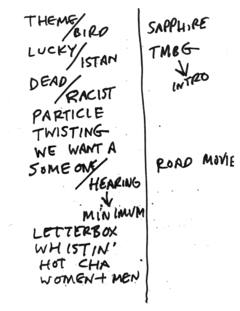 THEME/
BIRD
LUCKY/
ISTAN
DEAD/
RACIST
PARTICLE
TWISTING
WE WANT A
SOMEONE/
HEARING
MINIMUM
LETTERBOX
WHISTIN'
HOT CHA
WOMEN+MEN
SAPPHIRE
TMBG
INTRO
ROAD MOVIE